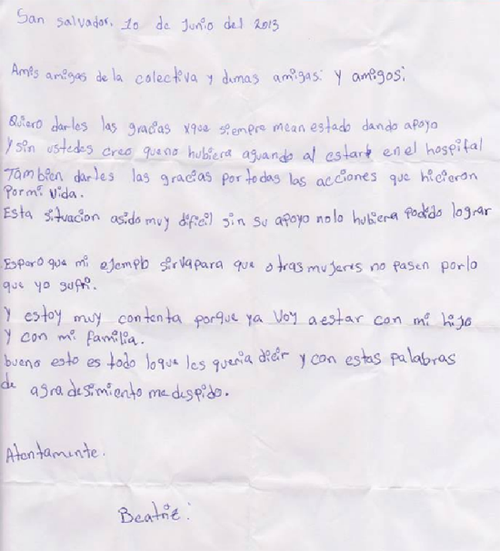 San salvador, 10 de Junio del 2013
Amis amigas de la colectiva y demas amigas: y amigos:
Quiero darles las gracias xque siempre mean estado dando apoyo
y sin ustedes creo queno hubiera aguando al estar en el hospital
Tambien darles las gracias por todas las acciones que hicieron
Por mi Vida.
Esta situacion asido muy dificil sin su apoyo nolo hubiera podido lograr
Espero que mi ejemplo sirva para que otras mujeres no pasen por lo
que yo sufri.
Y estoy muy contenta porque ya Voy aestar con mi hijo
y con mi familia.
bueno esto es todo loque les queria dicir y con estas palabras
de agradesimiento me despido.
Atentamente.
Beatriz: